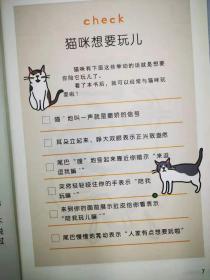 check
猫咪想要玩儿
猫咪有下面这些举动的话就是想要
你陪它玩儿了。
看了本书后，就可以经常与猫咪玩
耍啦！
“喵”地叫一声就是撒娇的信号
耳朵立起来、睁大双眼表示正兴致盎然
尾巴“嗖”地竖起来靠近你暗示“来逗
逗我嘛”
突然轻轻咬住你的手表示“陪我
玩嘛”
来到你的面前展示肚皮给你看表示
“陪我玩儿嘛”
尾巴慢慢地晃动表示“人家有点想要玩啦”
7